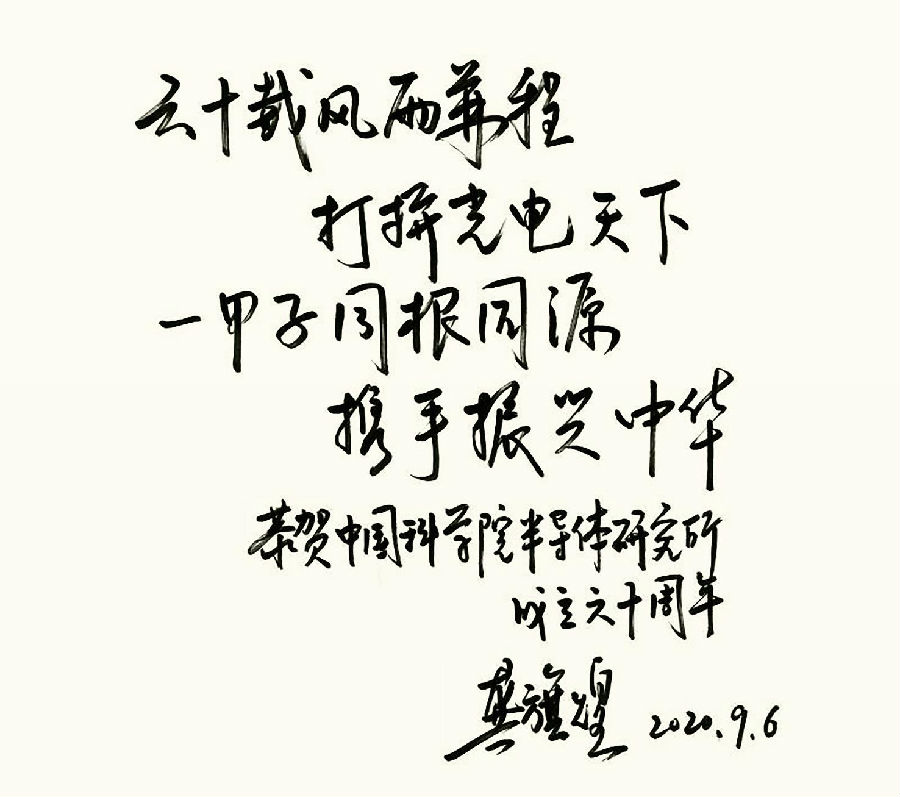 六十载风雨兼程
打拼光电天下
一甲子同根同源
携手振兴中华
恭贺中国科学院半导体研究所
成立六十周年
龚旗煌 2020.9.6